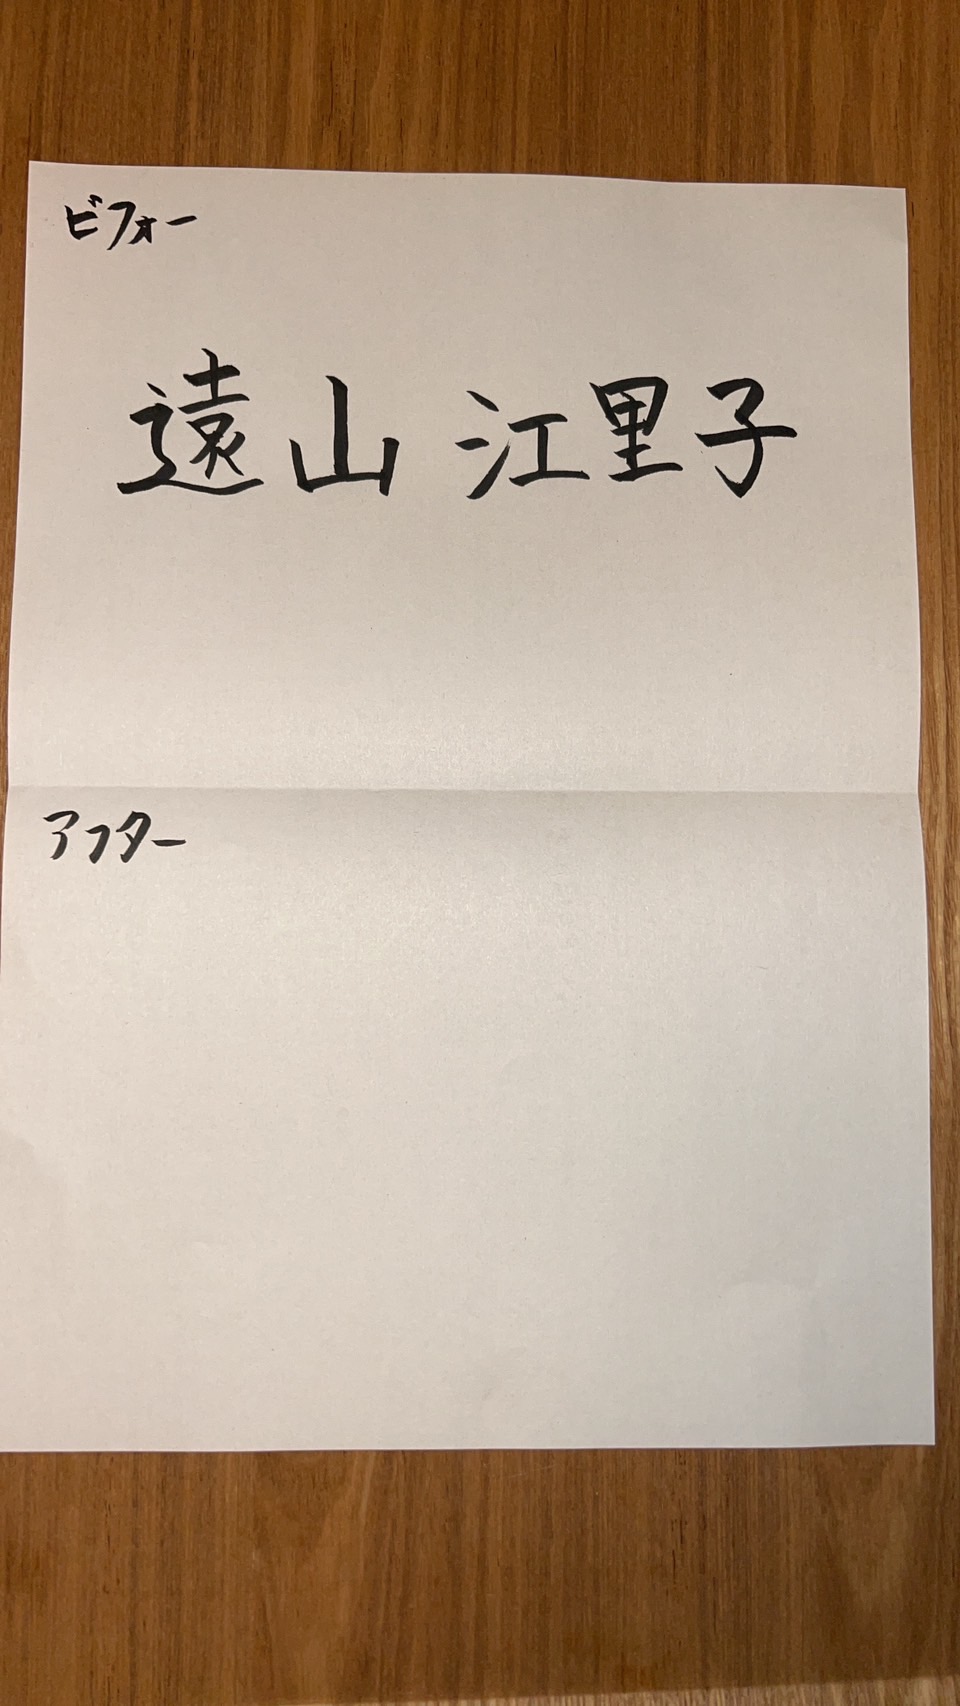 ビフォー
遠山 江里子
アフター